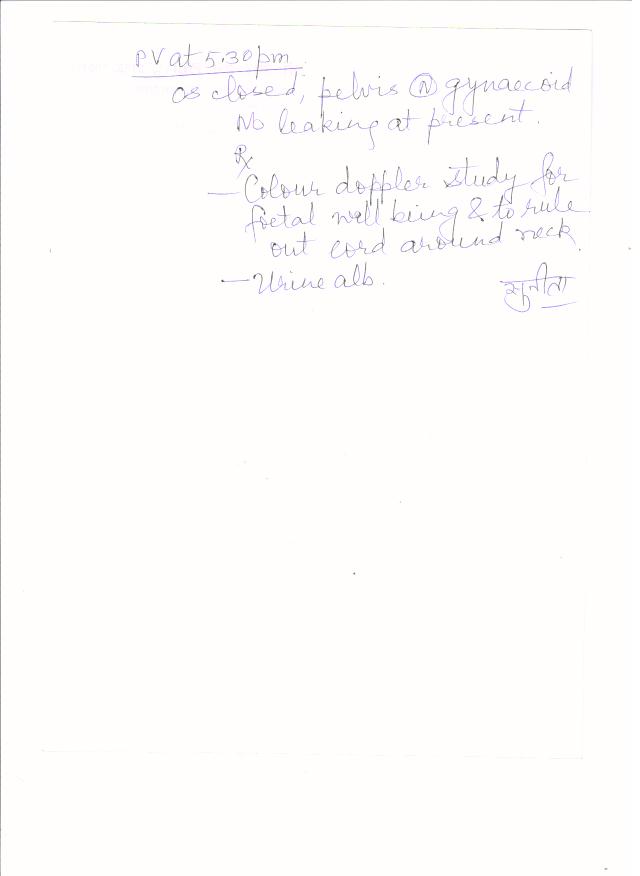 PV at 5.30pm
os closed, pelvis Ⓝ gynaecoid
No leaking at present.
℞
— Colour doppler study for
foetal well being & to rule
out cord around neck.
— Urine alb.
सुनीता